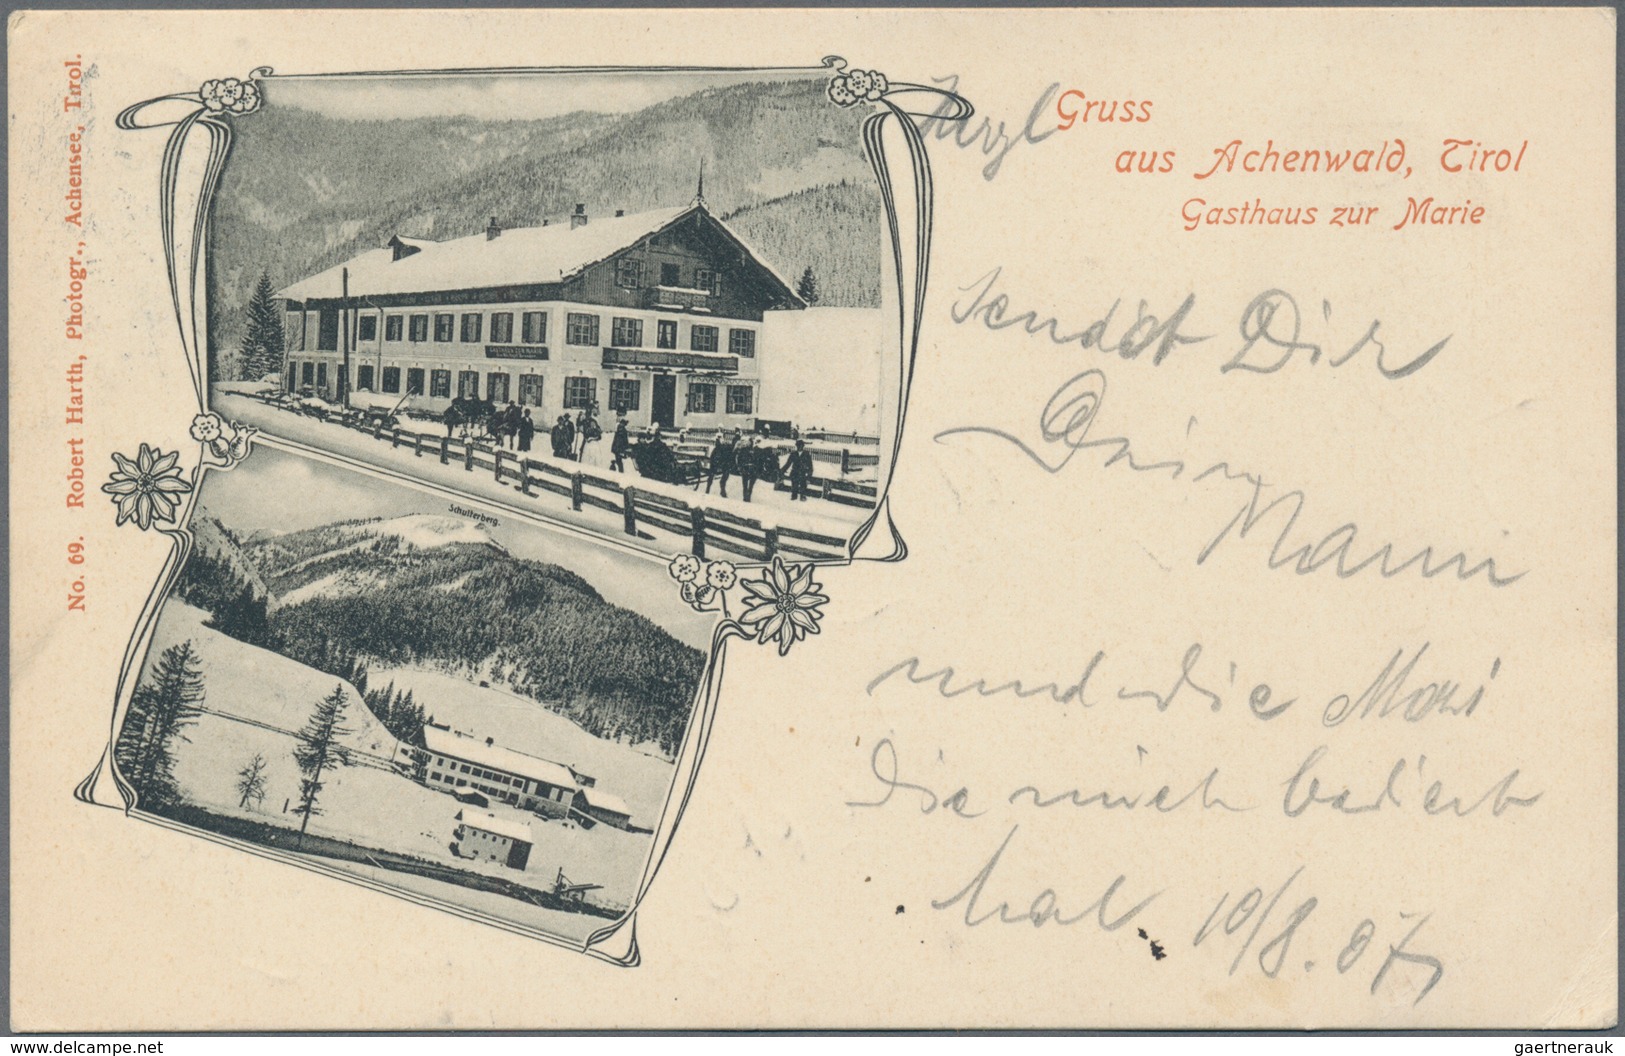 No. 69. Robert Harth, Photogr., Achensee, Tirol.
Gruss
aus Achenwald, Tirol
Gasthaus zur Marie
Schulterberg.
sendet Dir
Dein
Mann
und die Mari
Die mich bedient
hat. 10/8. 07
www.delcampe.net
gaertnerauk